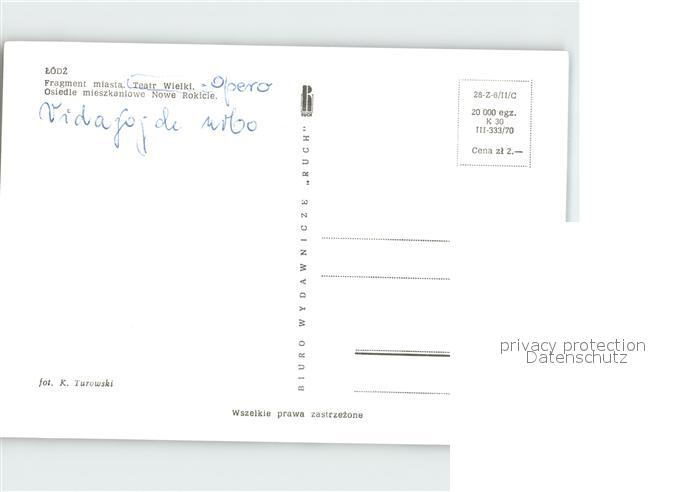 ŁÓDŹ
Fragment miasta. Teatr Wielki. - Opero
Osiedle mieszkaniowe Nowe Rokicie.
Vidaĵoj de urbo
RUCH
BIURO WYDAWNICZE „RUCH"
28-Z-6/II/C
20 000 egz.
K 30
III-333/70
Cena zł 2.—
privacy protection
Datenschutz
fot. K. Turowski
Wszelkie prawa zastrzeżone